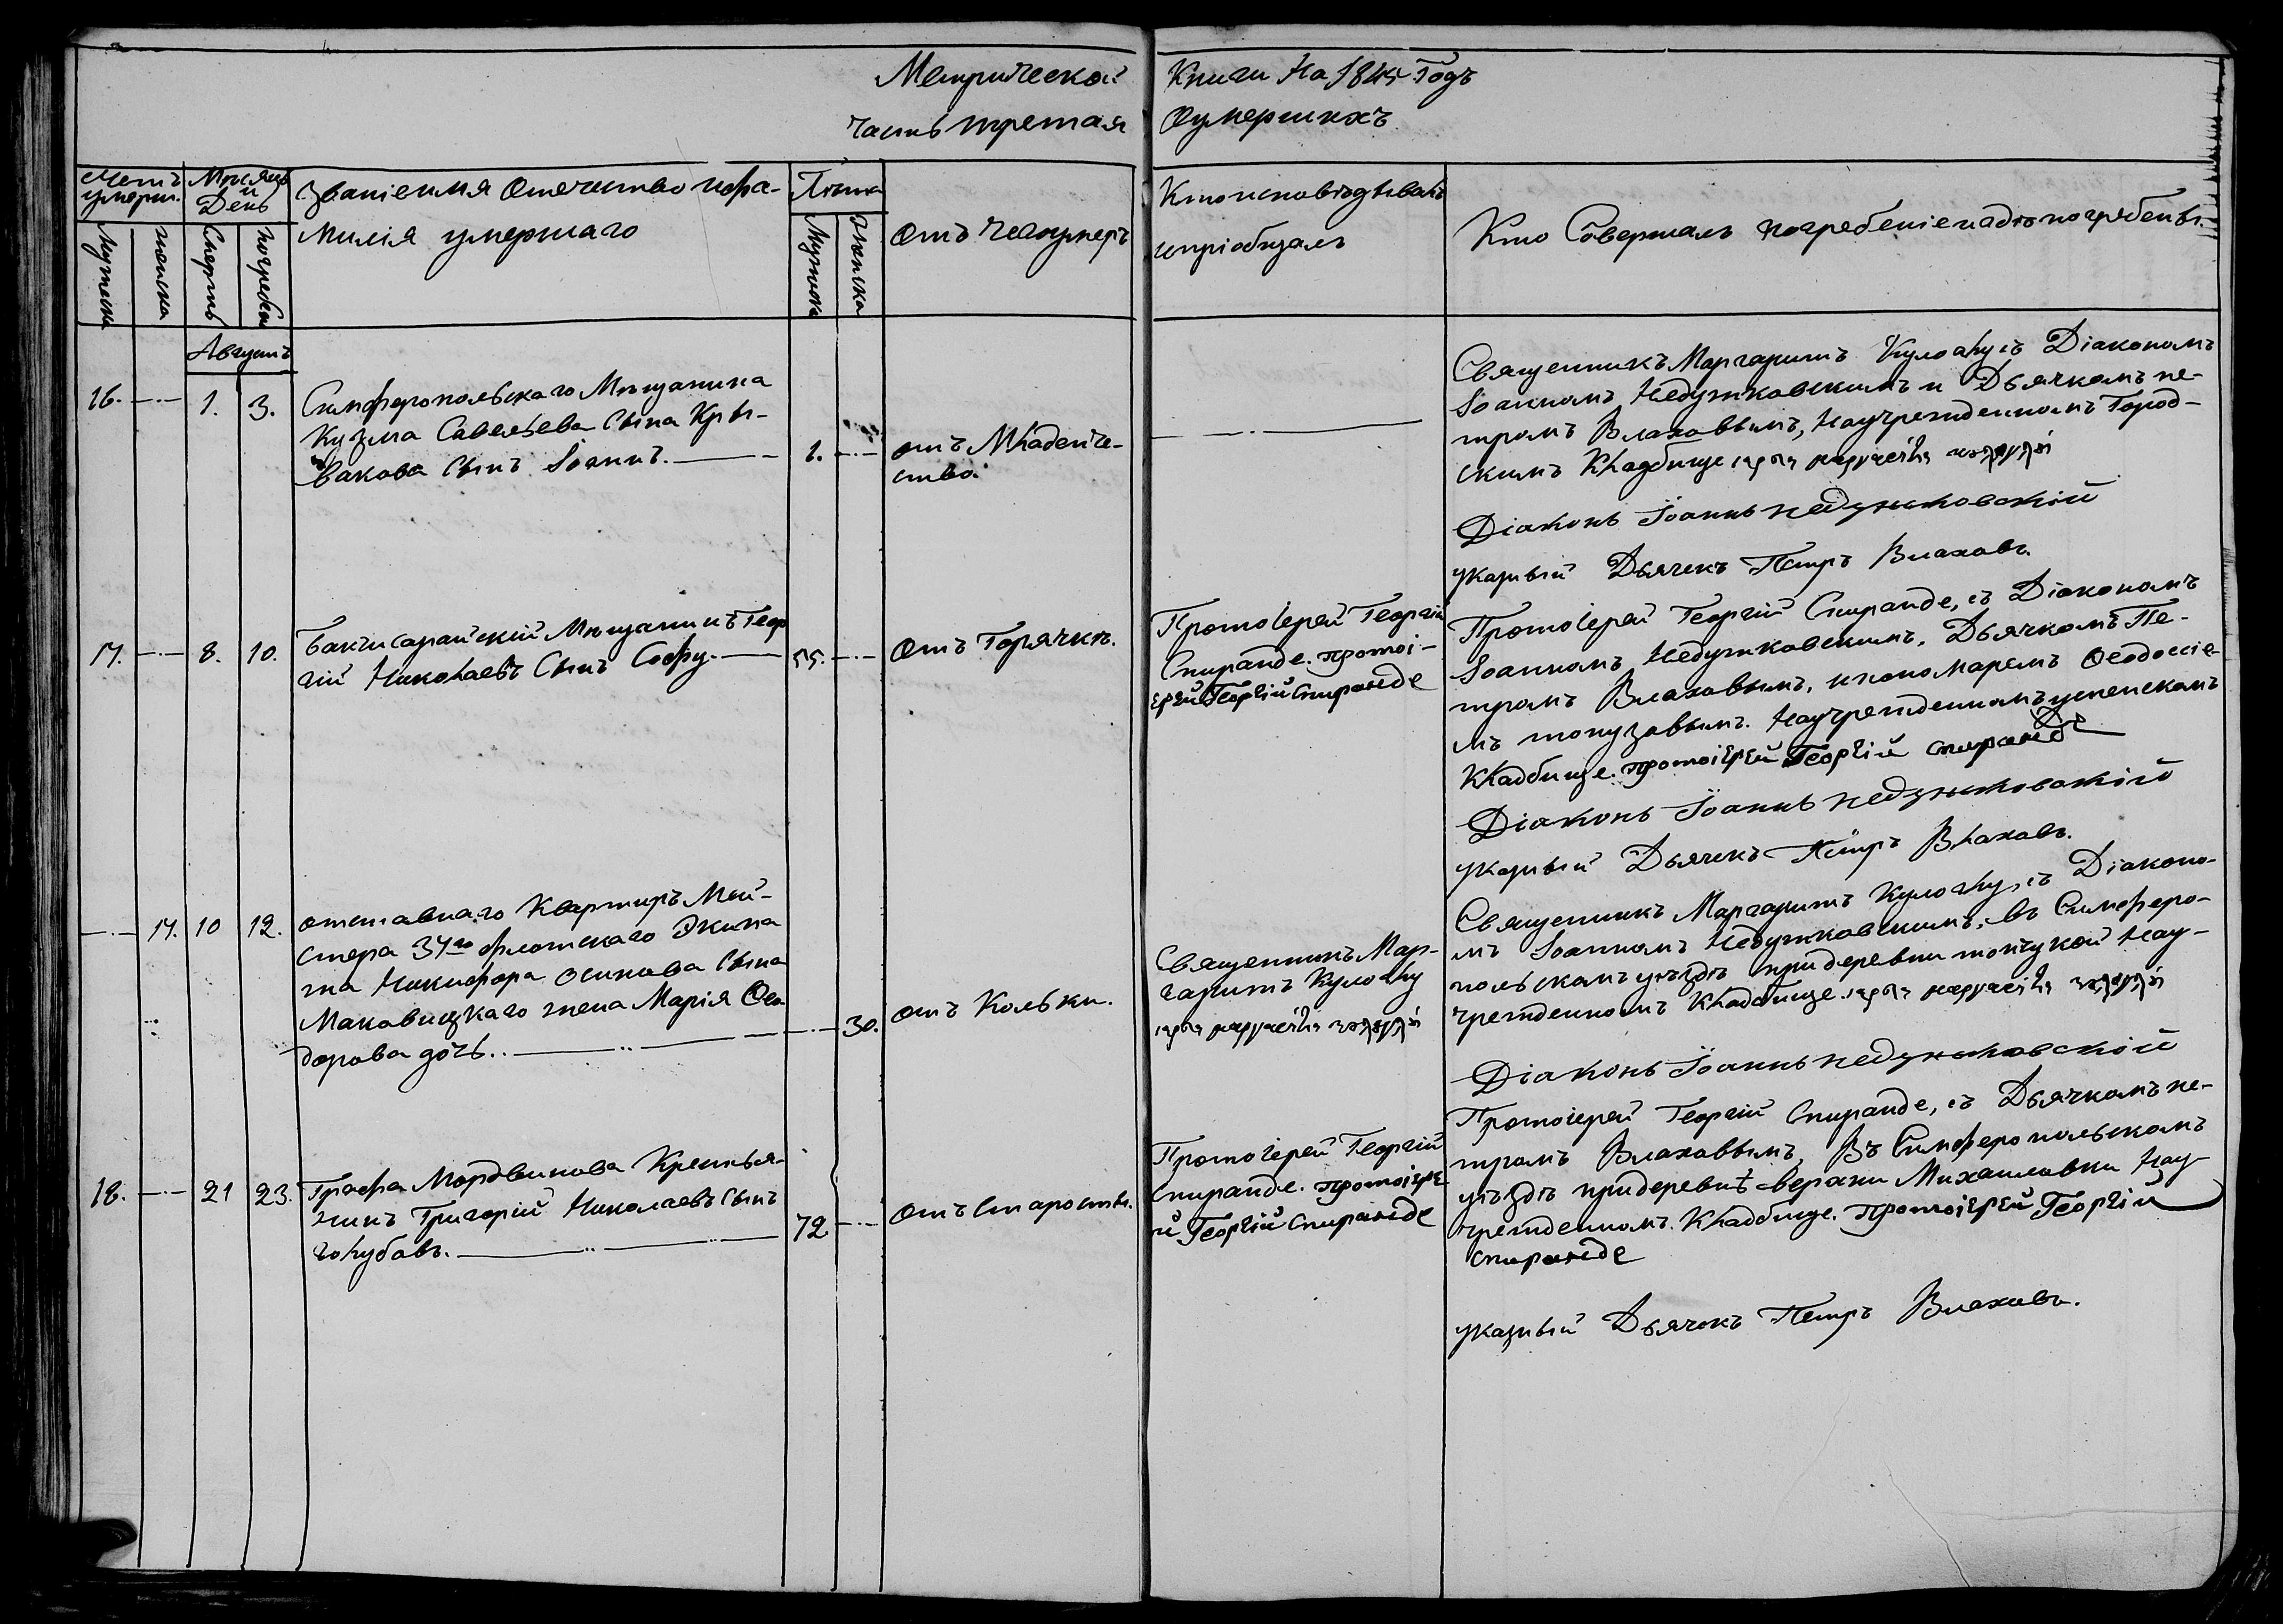 Метрической Книги На 1845 Годъ
Часть третая Оумершихъ
Счетъ умерш.
Мужеска
женска
Мѣсяцъ и День
Смерть
погребен
Званіе имя Отечество ифа-
милія умершаго
Лѣта
Мужеска
Женска
Отъ чегоумеръ
Ктоисповѣдывалъ
ипріобщалъ
Кто Совершалъ погребеніе игдѣ погребены.
Августъ
16.
1.
3.
Симферопольскаго Мѣщанина
Кузма Савельева Сына Кры-
вакова Сынъ Іоаннъ.
1.
отъ Младенче-
ства.
Священникъ Маргаритъ Кулоглу съ Діакономъ
Іоанномъ Недужковскимъ и Дьячкомъ Пе-
тромъ Влаховымъ, Научрежденномъ Город-
скимъ Кладбище
Діаконъ Іоаннъ Недужковскій
указный Дьячекъ Петръ Влаховъ.
17.
8.
10.
Бакчисарайскій Мѣщанинъ Геор
гій Николаевъ Сынъ Софу.
55.
Отъ Горячки.
Протоіерей Георгій
Спиранде. протоі-
ерей Георгій Спиранде
Протоіерей Георгій Спиранде, съ Діакономъ
Іоанномъ Недужковскимъ, Дьячкомъ Пе-
тромъ Влаховымъ, ипономаремъ Ѳеодосіе-
мъ топузовымъ. Научрежденномъ успенскомъ
Кладбище. протоіерей Георгій Спиранде
Діаконъ Іоаннъ Недужковскій
указный Дьячекъ Петръ Влаховъ.
17.
10
12.
отставнаго Квартиръ Мей-
стера 37го флотскаго Экипа
жа Никифора Осипова Сына
Маковицкаго жена Марія Ѳео-
дорова дочь..
30.
отъ Кольки.
Священникъ Мар-
гаритъ Кулоглу
Священникъ Маргаритъ Кулоглу, съ Діаконо-
мъ Іоанномъ Недужковскимъ, въ Симферо-
польскомъ уѣздѣ придеревни топчукой Нау-
чрежденномъ Кладбище.
Діаконъ Іоаннъ Недужковскій
18.
21
23.
Графа Мордвинова Крестья-
нинъ Григорій Николаевъ Сынъ
голубовъ.
72
Отъ Старости.
Протоіерей Георгій
Спиранде. протоіере
й Георгій Спиранде
Протоіерей Георгій Спиранде, съ Дьячкомъ Пе-
тромъ Влаховымъ, Въ Симферопольскомъ
уѣздѣ придеревнѣ верхни Михаиловки Нау-
чрежденномъ. Кладбище. Протоіерей Георгій
Спиранде
указный Дьячекъ Петръ Влаховъ.